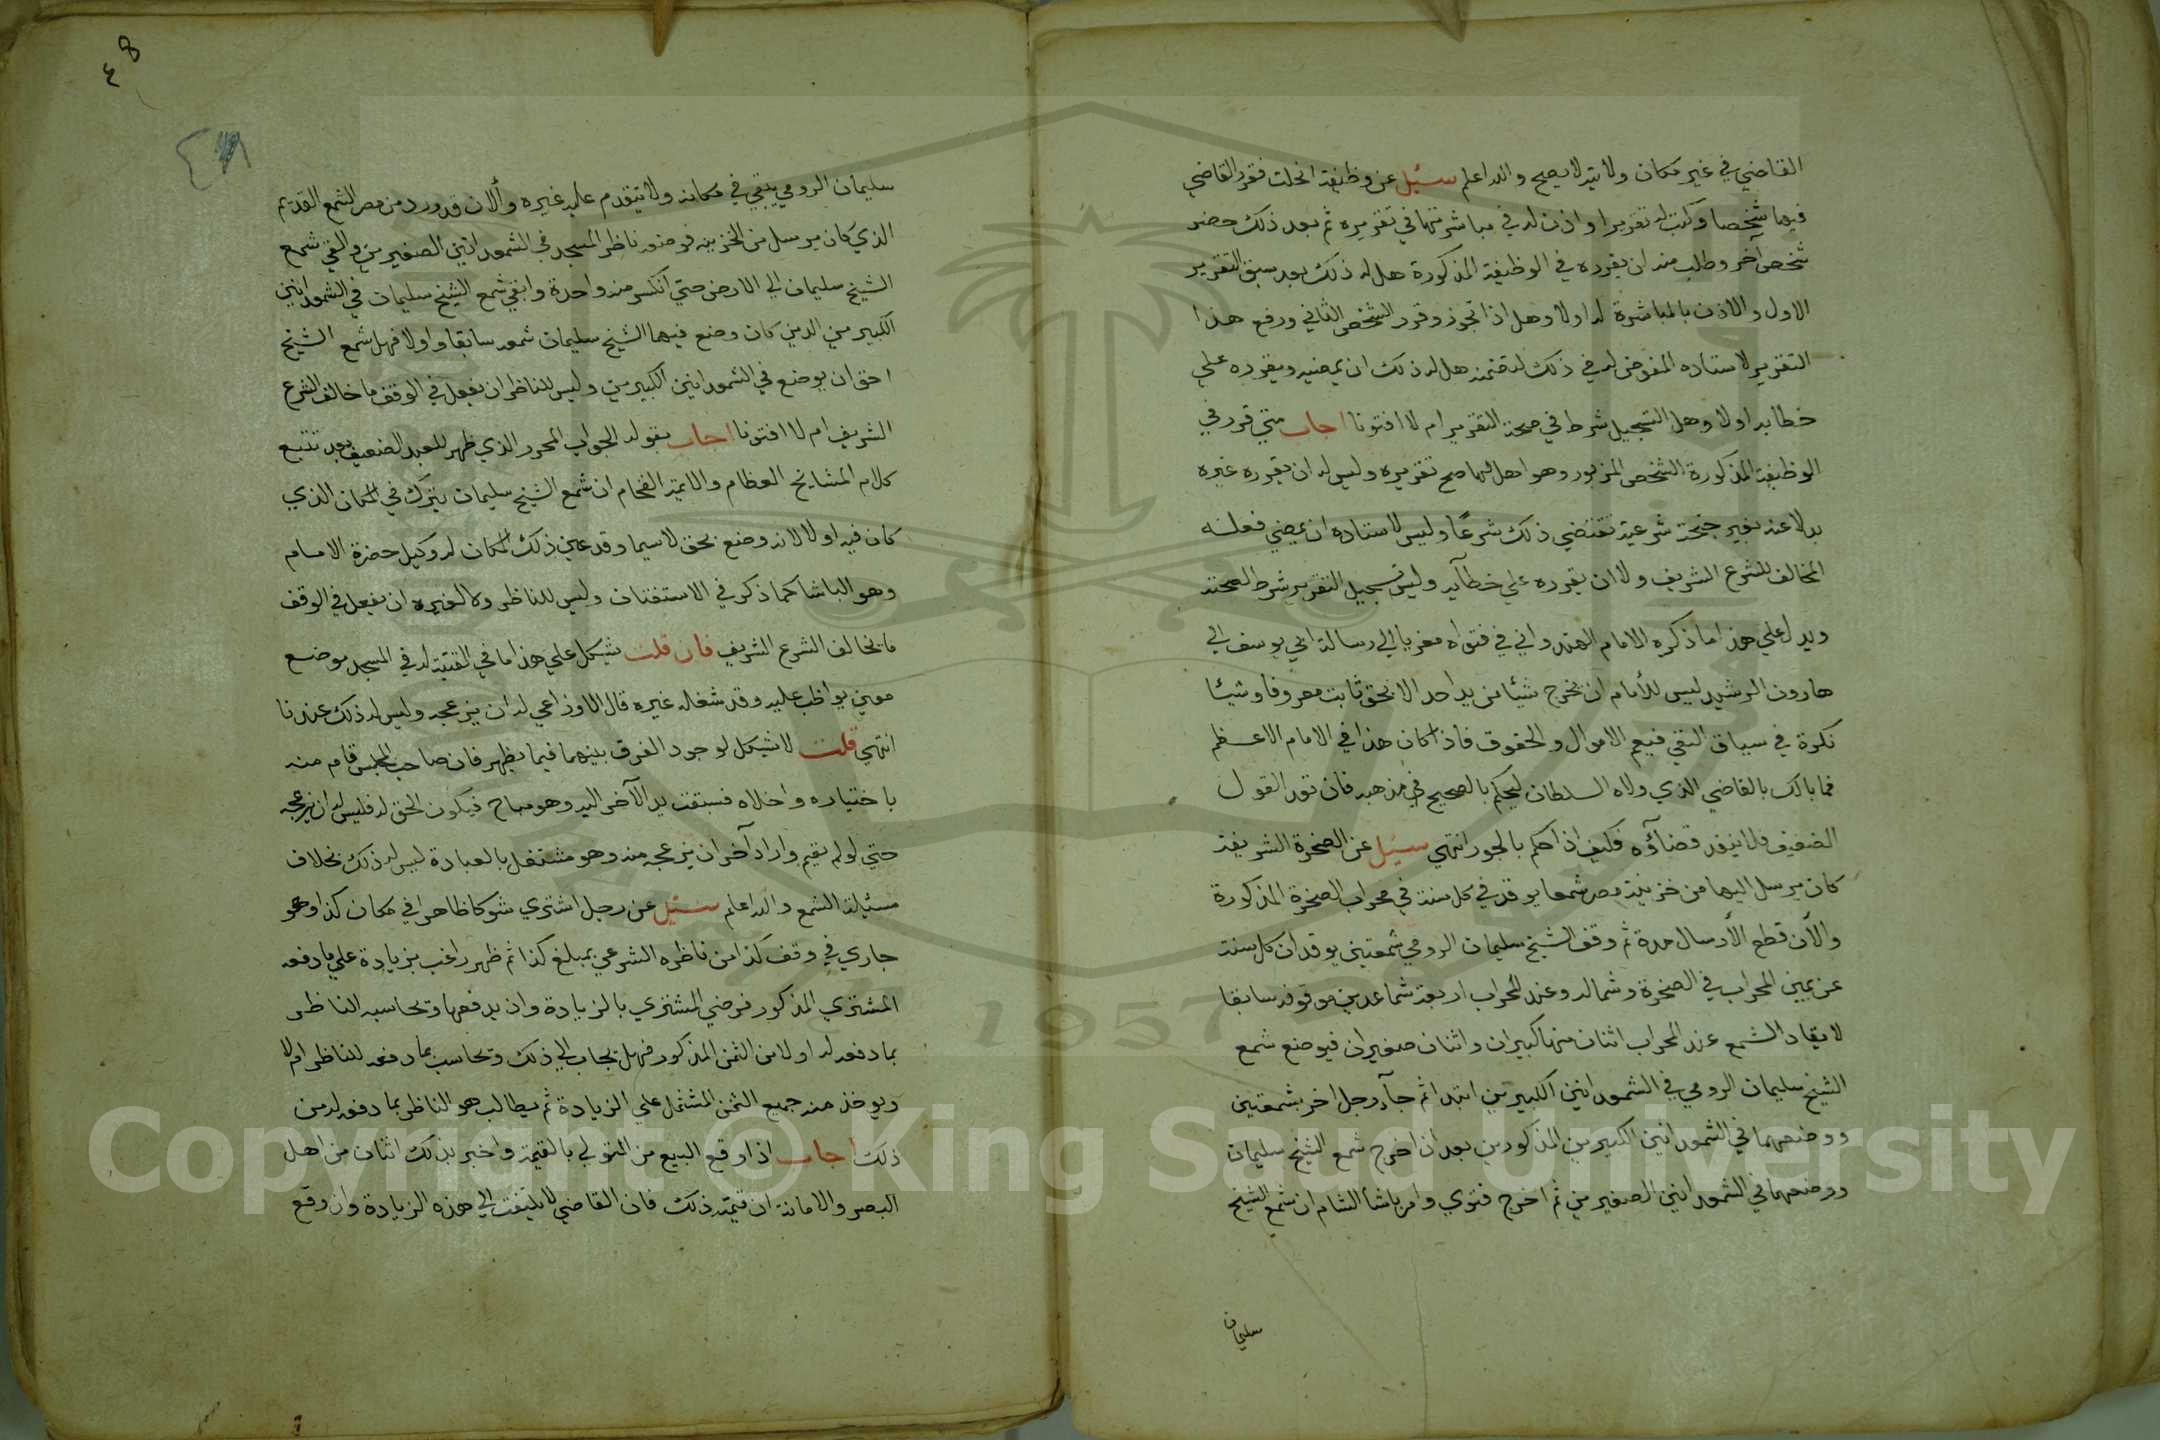 القاضي في غير مكان ولايته لا يصح والله اعلم سئيل عن وظيفة انحلت فقرر القاضي
فيها شخصا وكتب له تقريرا واذن له في مباشرتها في تقريره ثم بعد ذلك حضر
شخص آخر وطلب منه ان يقرره في الوظيفة المذكورة هل له ذلك بعد سبق التقرير
الاول والاذن بالمباشرة له اولا وهل اذا تجوز وقرر الشخص الثاني ورفع هذا
التقرير لاستاده المفوض له في ذلك له قمته هل له ذلك ان يمضيه ويقرره علي
خطايه اولا وهل التسجيل شرط في صحة التقرير ام لا افتونا اجاب متي قرر في
الوظيفة المذكورة الشخص المزبور وهو اهل لها صح تقريره وليس له ان يقرره غيره
بدلا عنه بغير جنحة شرعية تقتضي ذلك شرعًا وليس لاستاده ان يمضي فعله
المخالف للشرع الشريف ولا ان يقرره علي خطآيه وليس تسجيل التقرير شرط لصحته
ويدل علي هذا ما ذكره الامام الهندواني في فتواه معزيا الي رسالة ابي يوسف الي
هارون الرشيد ليس للأمام ان يخرج شيئا من يد احد الا بحق ثابت معروفا وشيئا
نكرة في سياق النفي فيعم الاموال والحقوق فاذا كان هذا في الامام الاعظم
فما بالك بالقاضي الذي ولاه السلطان ليحكم بالصحيح في مذهبه فان تور القول
الضعيف فلا ينفد قضاؤه فكيف اذا حكم بالجور انتهي سئيل عن الصخرة الشريفة
كان يرسل اليها من خزينة مصر شمعا يوقد في كل سنة في محراب الصخرة المذكورة
والآن قطع الأرسال مدة ثم وقف الشيخ سليمان الرومي شمعتين يوقدان كل سنة
عن يمين المحراب في الصخرة وشماله وعند المحراب اربعة شماعدين موقوفه سابقا
لايقاد الشمع عند المحراب اثنان منها كبيران واثنان صغيران فيوضع شمع
الشيخ سليمان الرومي في الشمعدانين الكبيرين ابتدا ثم جآء رجل اخر بشمعتين
ووضعهما في الشمعدانين الكبيرين المذكورين بعد ان اخرج شمع الشيخ سليمان
ووضعهما في الشمعدانين الصغيرين ثم اخرج فتوي وامر باشا الشام ان شمع الشيخ
سليمان
٤٨
سليمان الرومي يبقي في مكانه ولا يتقدم عليه غيره وألان قد ورد من مصر الشمع القديم
الذي كان يرسل من الخزينه فوضعه ناظر المسجد في الشمعدانين الصغيرين والقي شمع
الشيخ سليمان الي الارض حتي انكسر منه واحدة وابقي شمع الشيخ سليمان في الشمعدانين
الكبيرين الذين كان وضع فيهما الشيخ سليمان شمعه سابقا واولا فهل شمع الشيخ
احق ان يوضع في الشمعدانين الكبيرين وليس للناظر ان يفعل في الوقف ما خالف الشرع
الشريف ام لا افتونا اجاب بقوله الجواب المحرر الذي ظهر للعبد الضعيف بعد تتبع
كلام المشايخ العظام والايمة الفخام ان شمع الشيخ سليمان يترك في المكان الذي
كان فيه اولا لانه وضع بحق لاسيما وقد عين ذلك المكان له وكيل حضرة الامام
وهو الباشا كما ذكر في الاستفتان وليس للناظر ولا لغيره ان يفعل في الوقف
ما يخالف الشرع الشريف فان قلت يشكل علي هذا ما في القنية له في المسجد موضع
معين يواظب عليه وقد شغله غيره قال الاوزاعي له ان يزعجه وليس له ذلك عندنا
انتهي قلت لا يشكل لوجود الفرق بينهما فيما يظهر فان صاحب المجلس قام منه
باختياره واخلاه فسبقت يد الآخر اليه وهو مباح فيكون الحق له فليس له ان يزعجه
حتي لو لم يقيم واراد آخر ان يزعجه منه وهو مشتغل بالعبادة ليس له ذلك بخلاف
مسئيلة الشمع والله اعلم سئيل عن رجل اشتري شوكا ظاهرا في مكان كذا وهو
جاري في وقف كذا من ناظره الشرعي بمبلغ كذا ثم ظهر راغب بزيادة علي ما دفعه
المشتري المذكور فرضي المشتري بالزيادة وان يدفعها وتحاسبه الناظر
بما دفعه له اولا من الثمن المذكور فهل يجاب الي ذلك وتحاسب بما دفعه للناظر ام لا
ويوخذ منه جميع الثمن المشتمل علي الزيادة ثم يطالب هو الناظر بما دفعه له من
ذلك اجاب اذا وقع البيع من المتولي بالقيمة واخبر بذلك اثنان من اهل
البصر والامانة ان قيمته ذلك فان القاضي لا يلتفت الي هذه الزيادة وان وقع
Copyright © King Saud University
1957